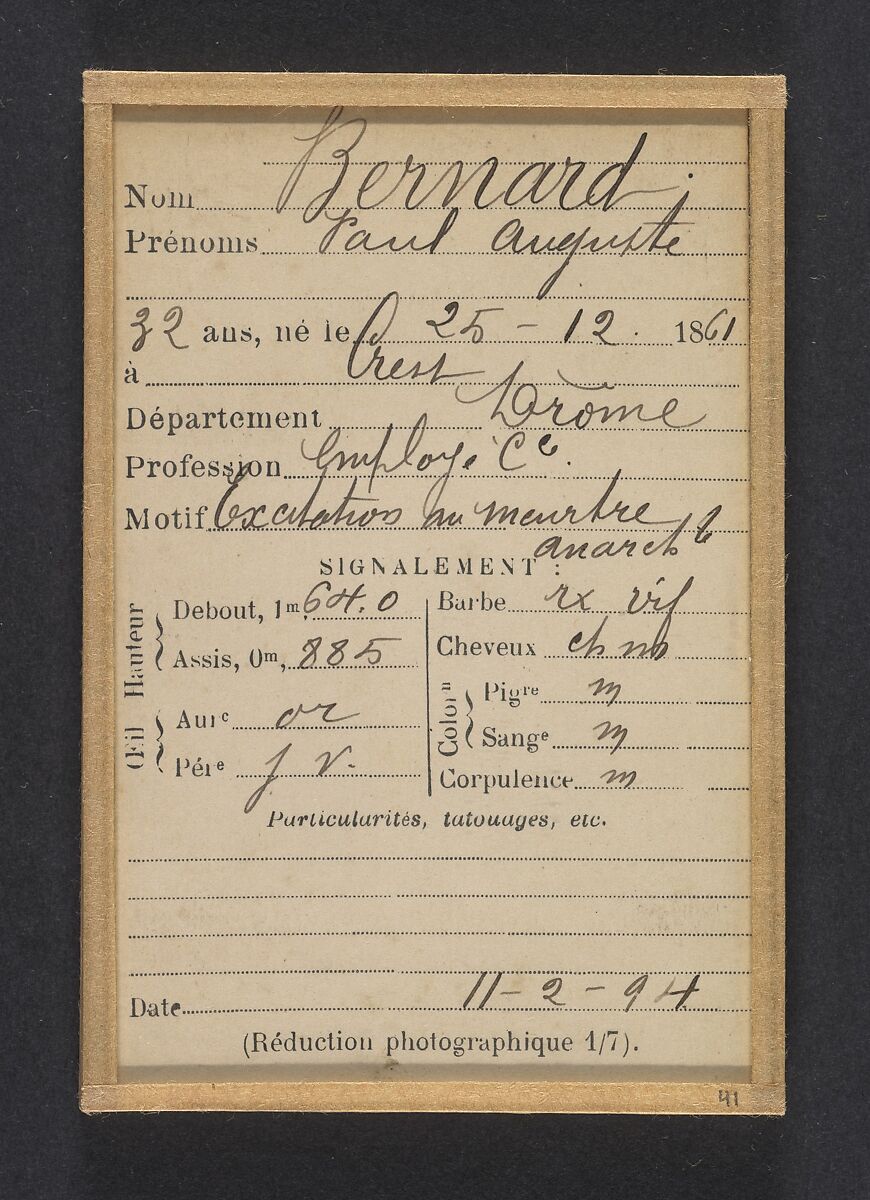 Nom Bernard.
Prénoms Paul Auguste
32 ans, né le 25-12. 1861
à Crest
Département Drôme
Profession Employé Cce.
Motif Excitation au meurtre
anarchte
SIGNALEMENT :
Hauteur
Debout, 1m, 64.0
Assis, 0m, 885
Œil
Aure or
Pére j v.
Barbe rx vif
Cheveux ch m
Colorn
Pigre m
Sange m
Corpulence m
Particularités, tatouages, etc.
Date 11-2-94
(Réduction photographique 1/7).
41